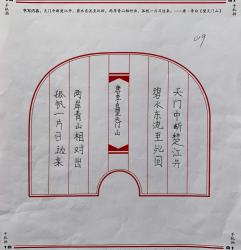 书写内容：天门中断楚江开，碧水东流至此回。两岸青山相对出，孤帆一片日边来。——唐·李白《望天门山》
49
天门中断楚江开
碧水东流至此回
唐李白望天门山
两岸青山相对出
孤帆一片日边来